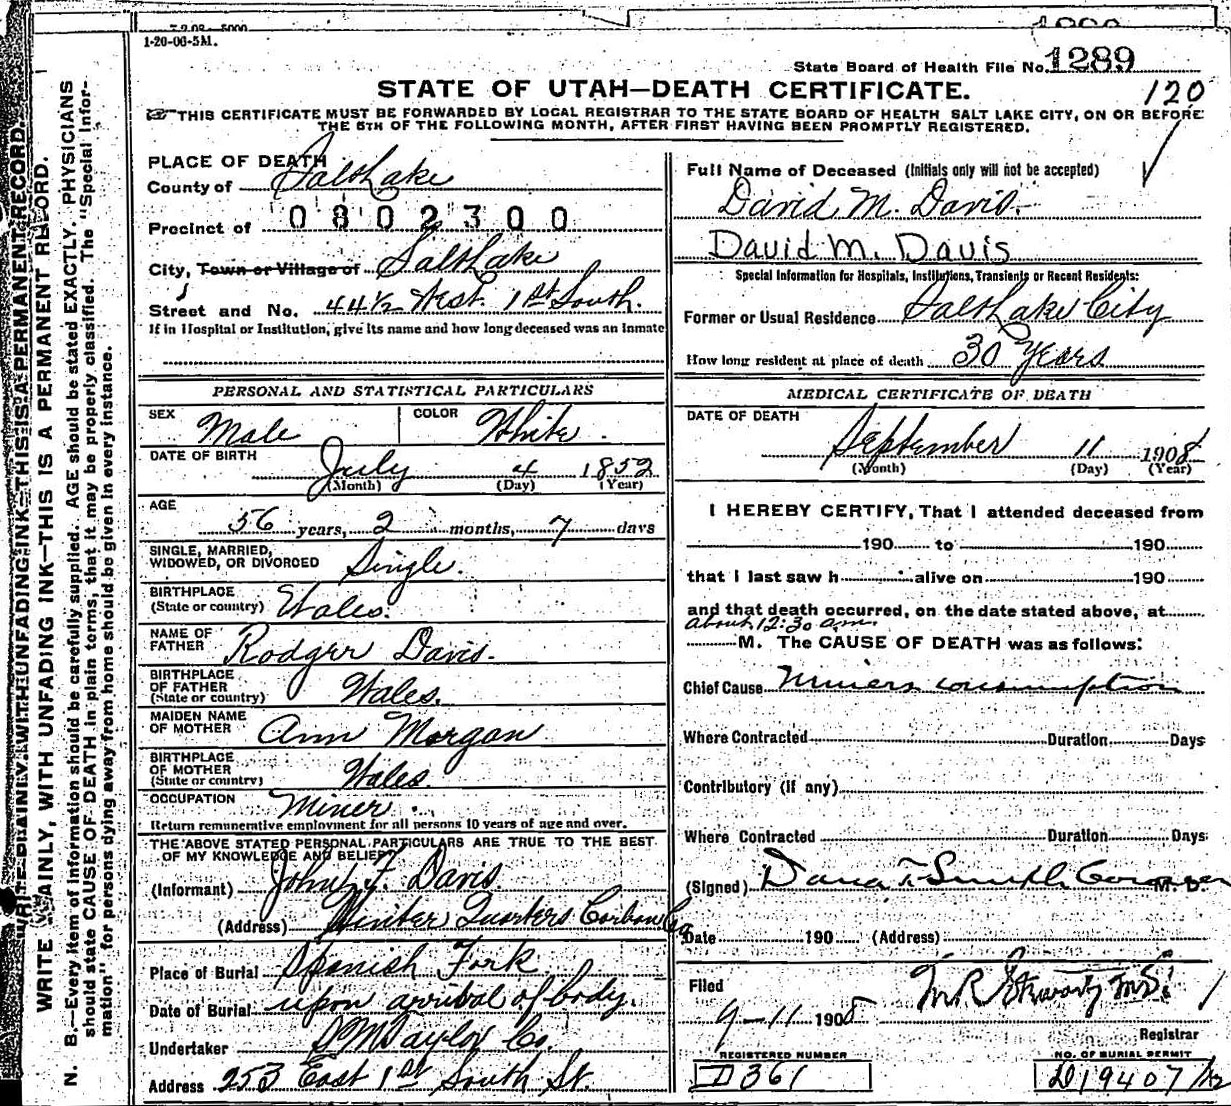 1-20-06-5M.
State Board of Health File No. 1289
STATE OF UTAH—DEATH CERTIFICATE.
120
THIS CERTIFICATE MUST BE FORWARDED BY LOCAL REGISTRAR TO THE STATE BOARD OF HEALTH SALT LAKE CITY, ON OR BEFORE
THE 5TH OF THE FOLLOWING MONTH, AFTER FIRST HAVING BEEN PROMPTLY REGISTERED.
PLACE OF DEATH
County of Salt Lake
Precinct of 0802300
City, Town or Village of Salt Lake
Street and No. 44½ West 1st South.
If in Hospital or Institution, give its name and how long deceased was an inmate
Full Name of Deceased (Initials only will not be accepted)
David M. Davis
David M. Davis
Special Information for Hospitals, Institutions, Transients or Recent Residents:
Former or Usual Residence Salt Lake City
How long resident at place of death 30 Years
PERSONAL AND STATISTICAL PARTICULARS
SEX Male COLOR White
DATE OF BIRTH July 4 1852
(Month) (Day) (Year)
AGE 56 years, 2 months, 7 days
SINGLE, MARRIED,
WIDOWED, OR DIVORCED Single.
BIRTHPLACE
(State or country) Wales.
NAME OF
FATHER Rodger Davis.
BIRTHPLACE
OF FATHER
(State or country) Wales.
MAIDEN NAME
OF MOTHER Ann Morgan
BIRTHPLACE
OF MOTHER
(State or country) Wales.
OCCUPATION Miner.
Return remunerative employment for all persons 10 years of age and over.
THE ABOVE STATED PERSONAL PARTICULARS ARE TRUE TO THE BEST
OF MY KNOWLEDGE AND BELIEF
(Informant) John F. Davis
(Address) Winter Quarters Carbon Co
Place of Burial Spanish Fork
Date of Burial upon arrival of body.
Undertaker S M Taylor Co.
Address 253 East 1st South St.
MEDICAL CERTIFICATE OF DEATH
DATE OF DEATH
September 11 1908
(Month) (Day) (Year)
I HEREBY CERTIFY, That I attended deceased from
190 to 190
that I last saw h alive on 190
and that death occurred, on the date stated above, at
about 12:30 am.
M. The CAUSE OF DEATH was as follows:
Chief Cause Miners consumption
Where Contracted Duration Days
Contributory (if any)
Where Contracted Duration Days
(Signed) Dana T. Smith Coroner M. D.
Date 190 (Address)
Filed
9-11 1908
Registrar
REGISTERED NUMBER
D361
NO. OF BURIAL PERMIT
D19407
WRITE PLAINLY, WITH UNFADING INK—THIS IS A PERMANENT RECORD.
WRITE PLAINLY, WITH UNFADING INK—THIS IS A PERMANENT RECORD.
N. B.—Every item of information should be carefully supplied. AGE should be stated EXACTLY. PHYSICIANS
should state CAUSE OF DEATH in plain terms, that it may be properly classified. The "Special Infor-
mation" for persons dying away from home should be given in every instance.